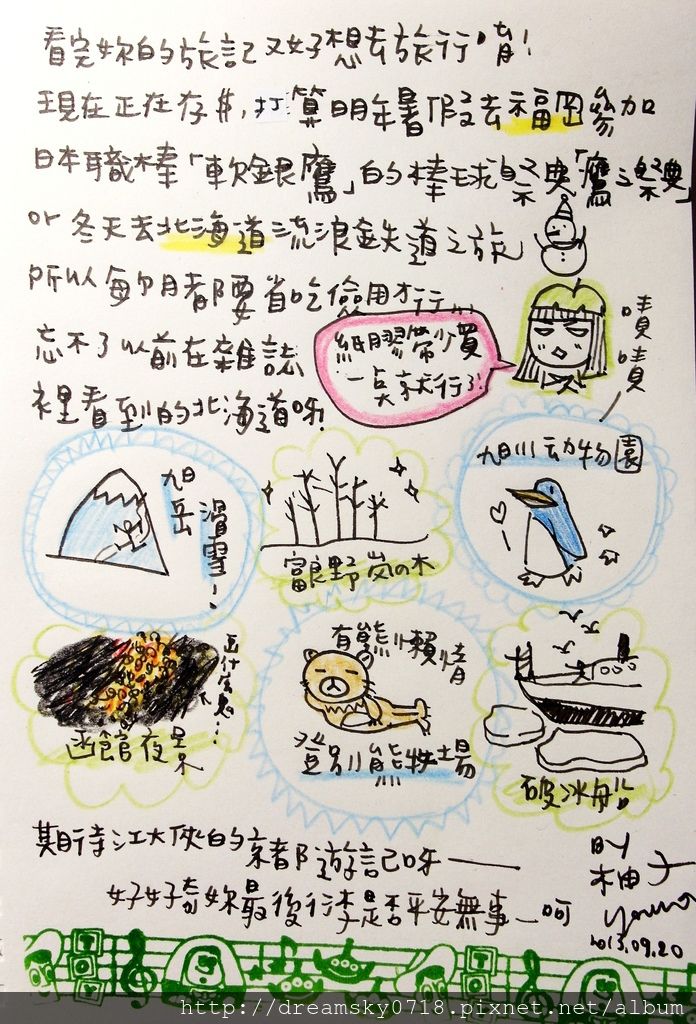 看完妳的旅記又好想去旅行唷!
現在正在存$,打算明年暑假去福岡參加
日本職棒「軟銀鷹」的棒球祭典「鷹之祭典」
or 冬天去北海道流浪鉄道之旅
所以每個月都要省吃儉用才行...
忘不了以前在雜誌
裡看到的北海道呀!
紙膠帶少買
一点就行了!
嘖
嘖
旭岳
滑雪!
富良野嵐の木
旭川动物園
函館夜景
有熊川懶情
登別熊牧場
破冰船
期待江大俠的京都遊記呀——
好好奇妳最後行李是否平安無事_呵
BY
柚子
2013.09.20
TOY
http://dreamsky0718.pixnet.net/album